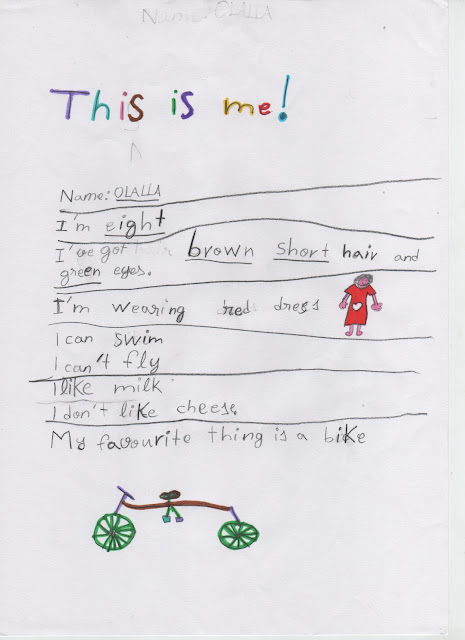 Name: OLALLA
This is me!
Name: OLALLA
I'm eight
I've got brown short hair and
green eyes.
I'm wearing red dress
I can swim
I can't fly
I like milk
I don't like cheese.
My favourite thing is a bike